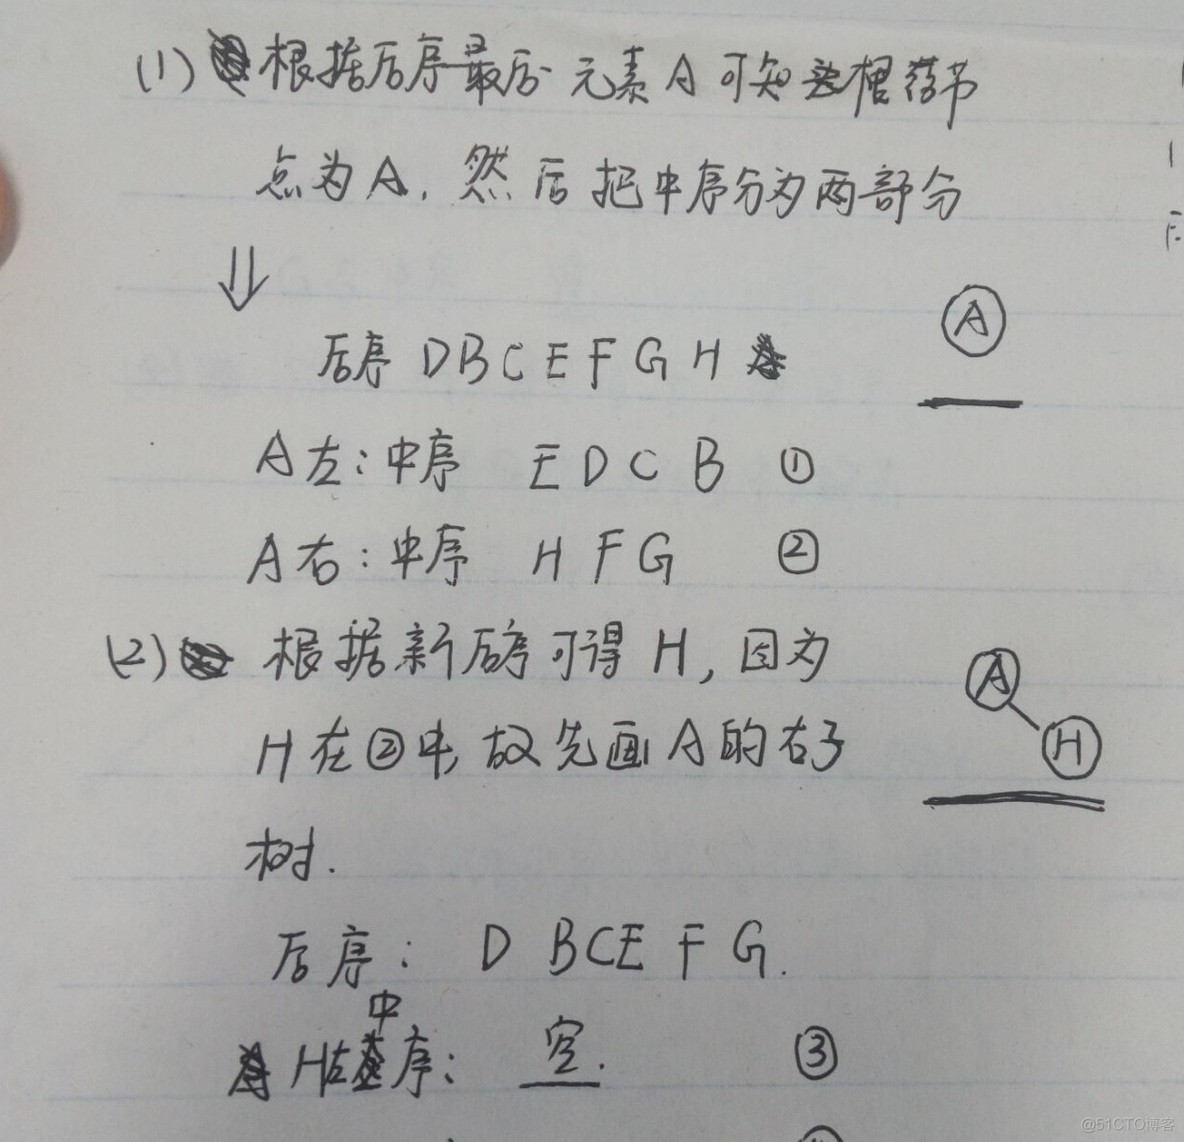 (1) 根据后序最后元素A可知根节
点为A, 然后把中序分为两部分
⇓
A
后序 D B C E F G H
A左: 中序 E D C B ①
A右: 中序 H F G ②
(2) 根据新后序可得 H, 因为
A
H在②中, 故先画A的右子
H
树.
后序: D B C E F G.
中
H左序: 空. ③
@51CTO博客